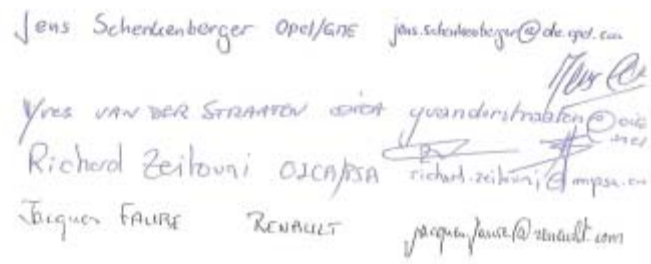 Jens Schenkenberger Opel/GME jens.schenkenberger@de.opel.com
Yves VAN DER STRAATEN OICA yvanderstraaten@oica.net
Richard Zeitouni OICA/PSA richard.zeitouni@mpsa.com
Jacques FAURE RENAULT jacques.faure@renault.com